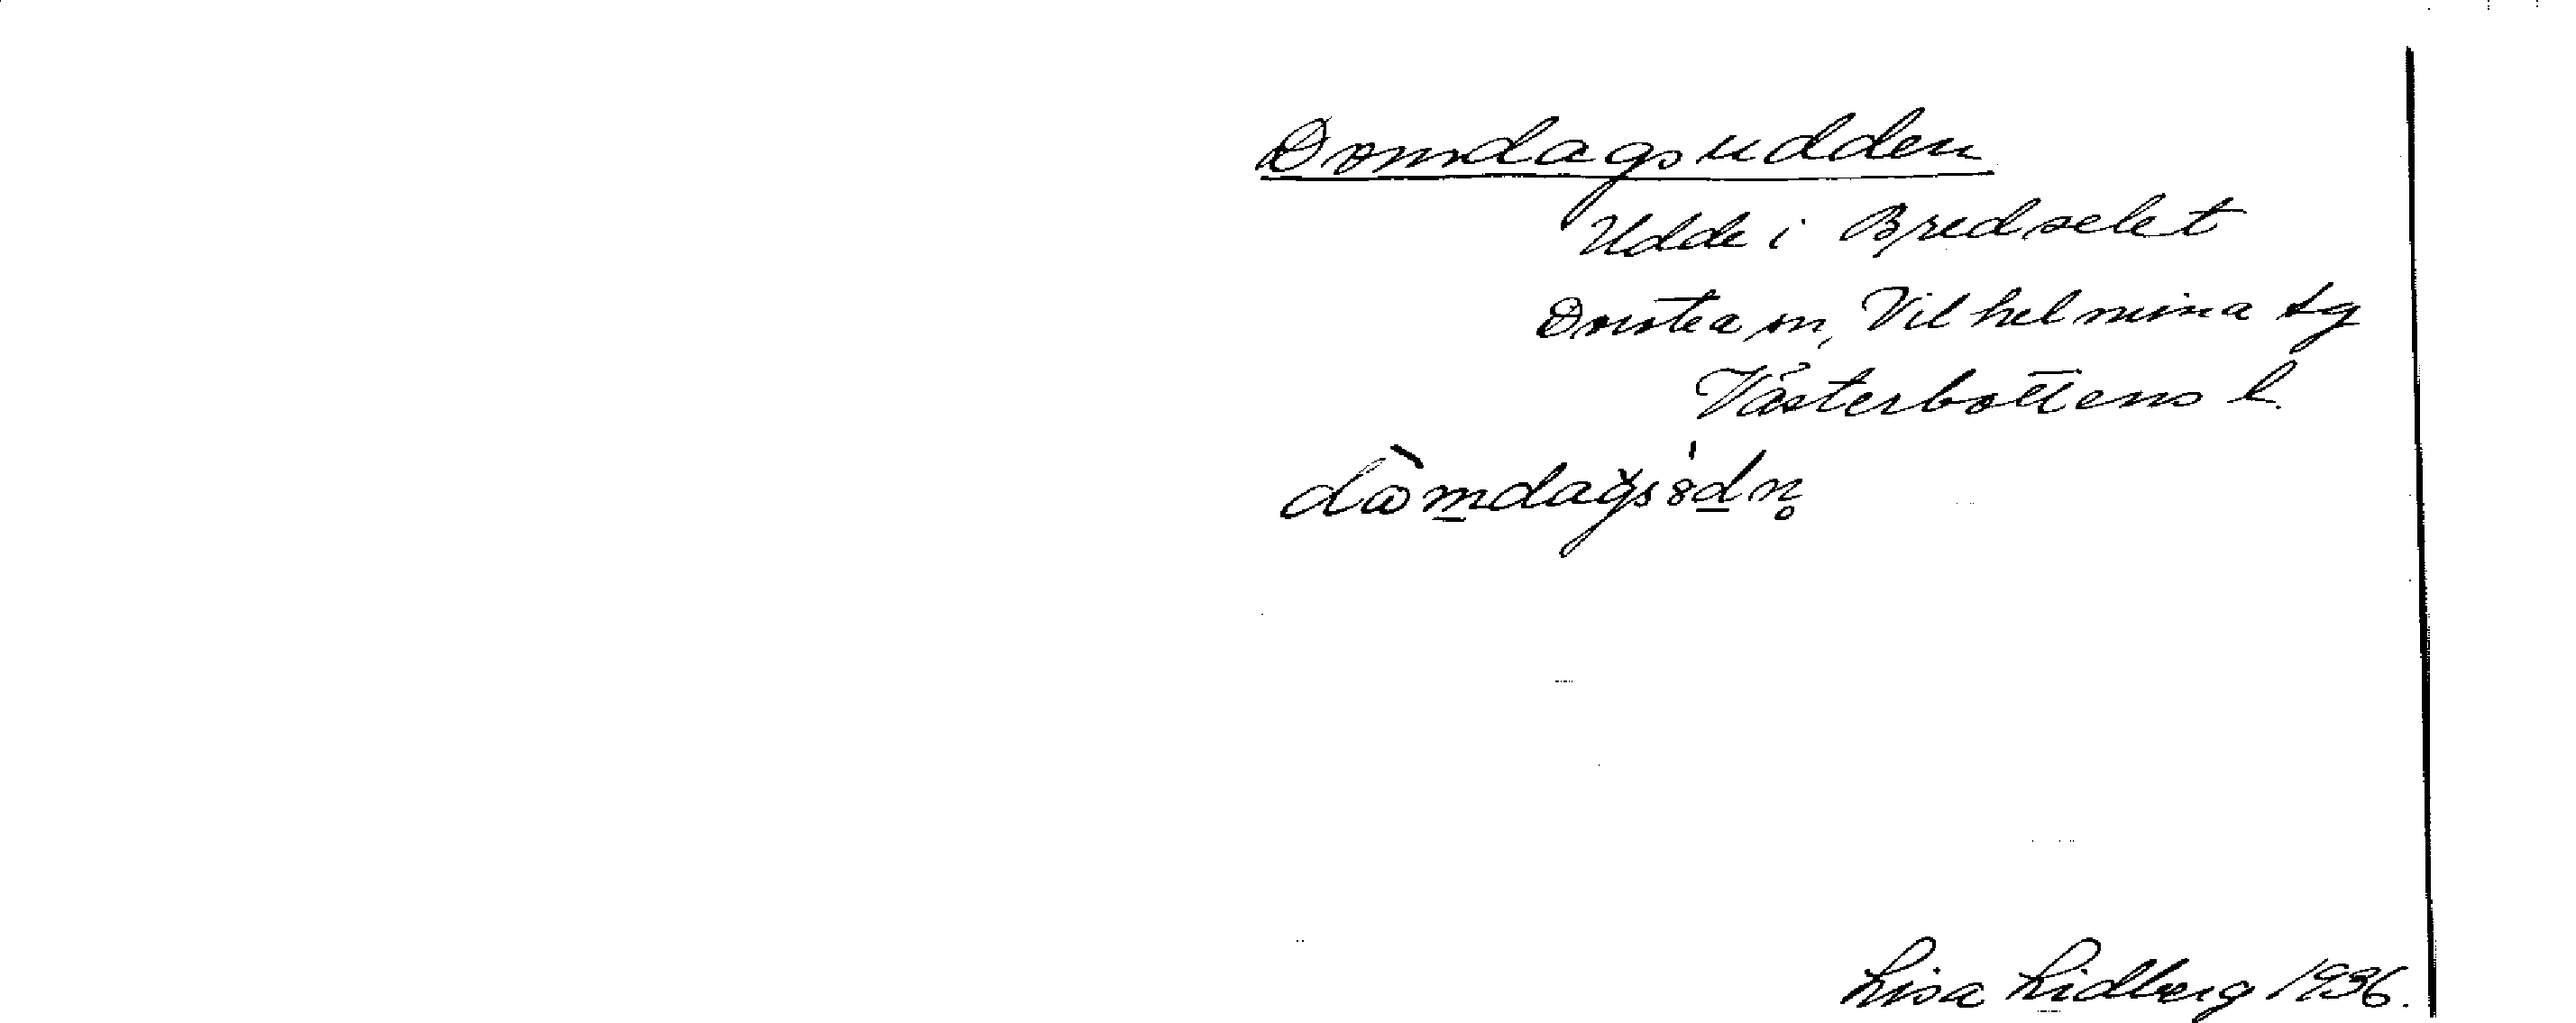 Domdagsudden
Udde i Bredselet
Dorotea sn, Vilhelmina tg
Västerbottens l.
Lisa Lidberg 1936.